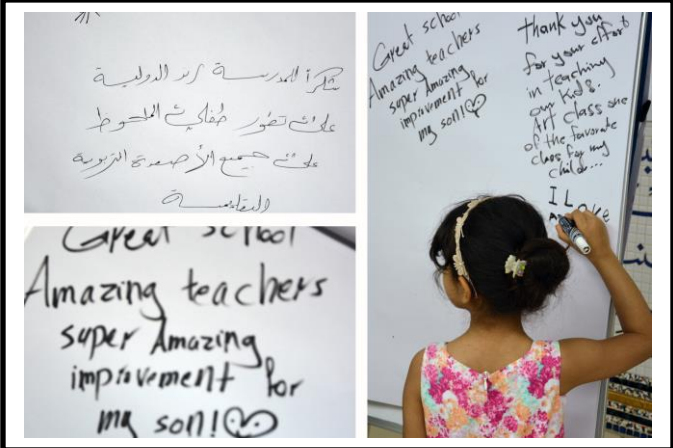 شكراً للمدرسة رند الدولية
على تطور طفلي الملحوظ
على جميع الأصعدة التربوية
Great school
Amazing teachers
super Amazing
improvement for
my son!
Great school
Amazing teachers
super Amazing
improvement for
my son!
Thank you
for your effort
in teaching
our kids.
Art class one
of the favorate
class for my
child...
I L